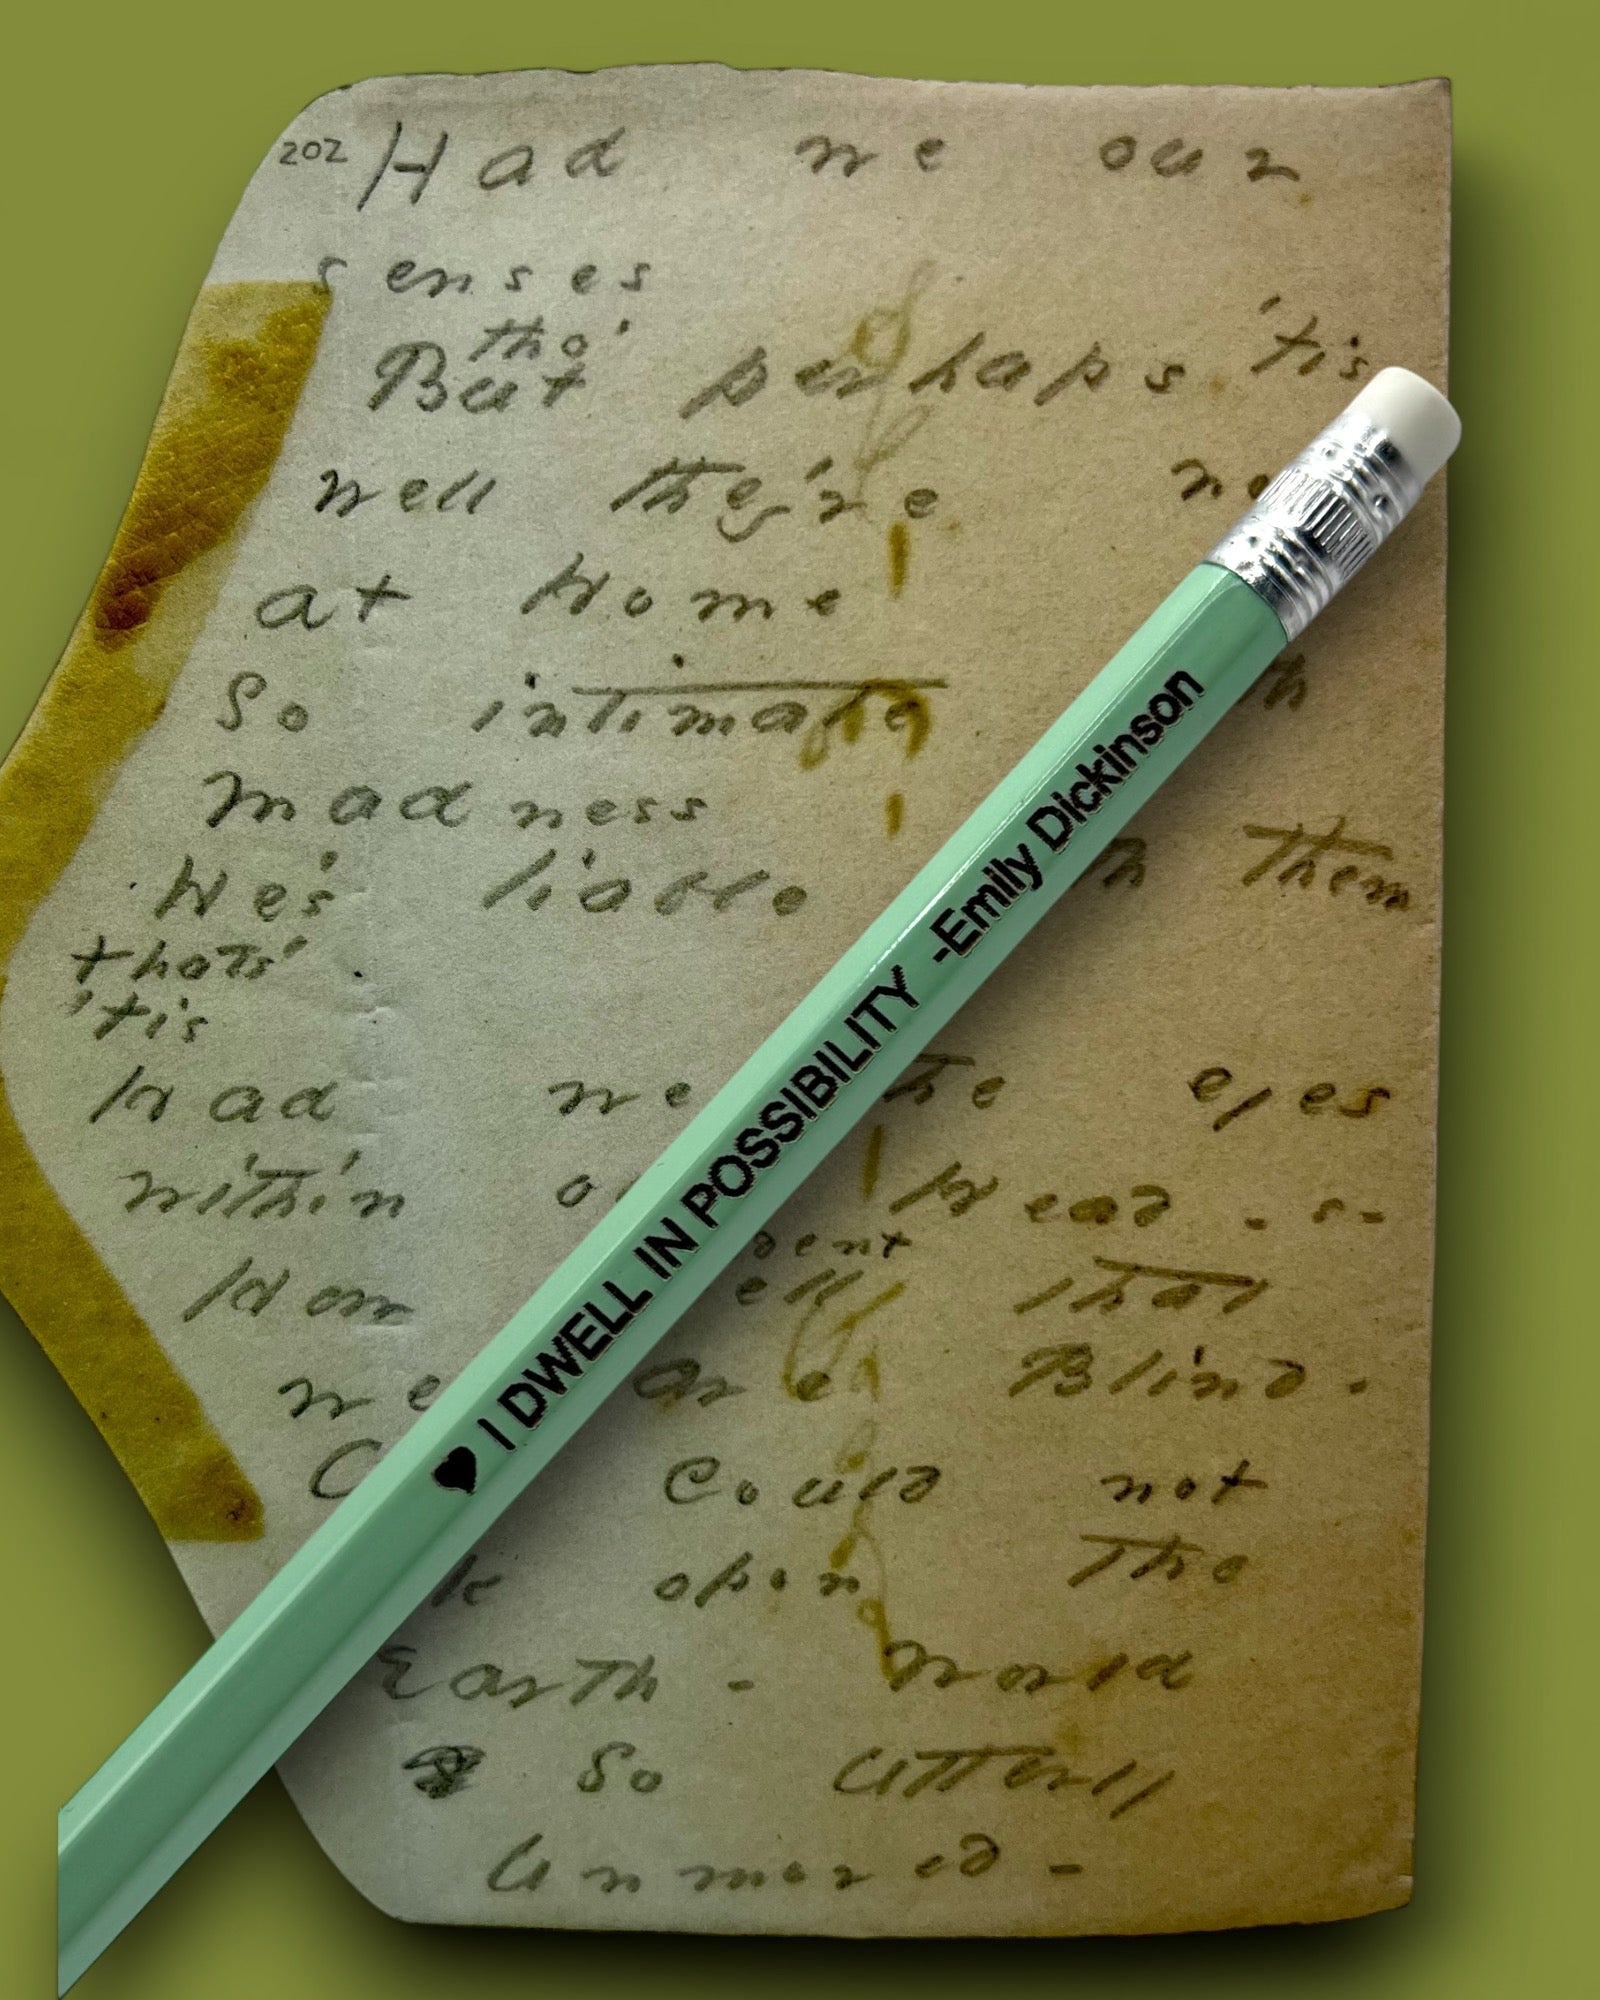 202 Had we our
senses
tho'
But perhaps 'tis
well they're
at Home
So intimate
madness
He's liable them
that's
'tis
Had we the eyes
within Head - s -
How that
we are Blind -
Could not
open the
Earth - World
So utterly
Unmoved -
♥ I DWELL IN POSSIBILITY -Emily Dickinson